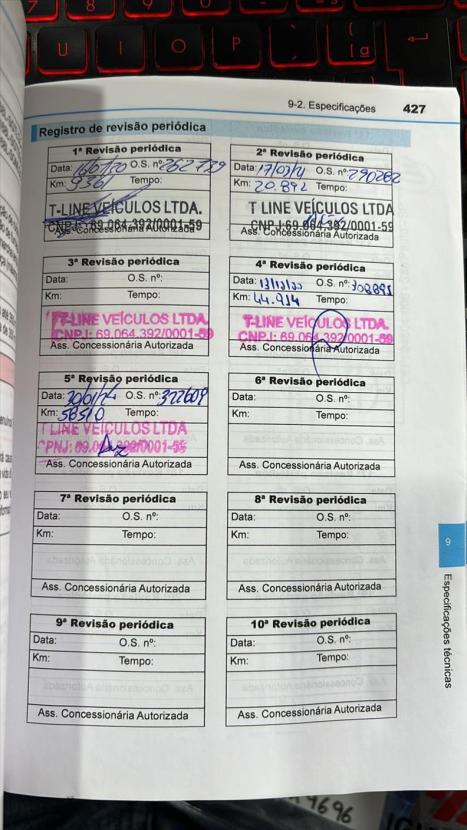 7 8 9 0
U I O P
9-2. Especificações 427
Registro de revisão periódica
1ª Revisão periódica
Data: O.S. nº: 262739
Km: 9361 Tempo:
T-LINE VEÍCULOS LTDA.
CNPJ:69.064.392/0001-59
Ass. Concessionária Autorizada
2ª Revisão periódica
Data: 17/03/21 O.S. nº: 290282
Km: 20.892 Tempo:
T LINE VEÍCULOS LTDA
CNPJ:69.064.392/0001-59
Ass. Concessionária Autorizada
3ª Revisão periódica
Data: O.S. nº:
Km: Tempo:
T-LINE VEÍCULOS LTDA.
CNPJ: 69.064.392/0001-59
Ass. Concessionária Autorizada
4ª Revisão periódica
Data: O.S. nº: 308898
Km: 44.914 Tempo:
T-LINE VEÍCULOS LTDA.
CNPJ: 69.064.392/0001-59
Ass. Concessionária Autorizada
5ª Revisão periódica
Data: O.S. nº: 322609
Km: 56510 Tempo:
T LINE VEÍCULOS LTDA
Ass. Concessionária Autorizada
6ª Revisão periódica
Data: O.S. nº:
Km: Tempo:
Ass. Concessionária Autorizada
7ª Revisão periódica
Data: O.S. nº:
Km: Tempo:
Ass. Concessionária Autorizada
8ª Revisão periódica
Data: O.S. nº:
Km: Tempo:
Ass. Concessionária Autorizada
9ª Revisão periódica
Data: O.S. nº:
Km: Tempo:
Ass. Concessionária Autorizada
10ª Revisão periódica
Data: O.S. nº:
Km: Tempo:
Ass. Concessionária Autorizada
9
Especificações técnicas
9696